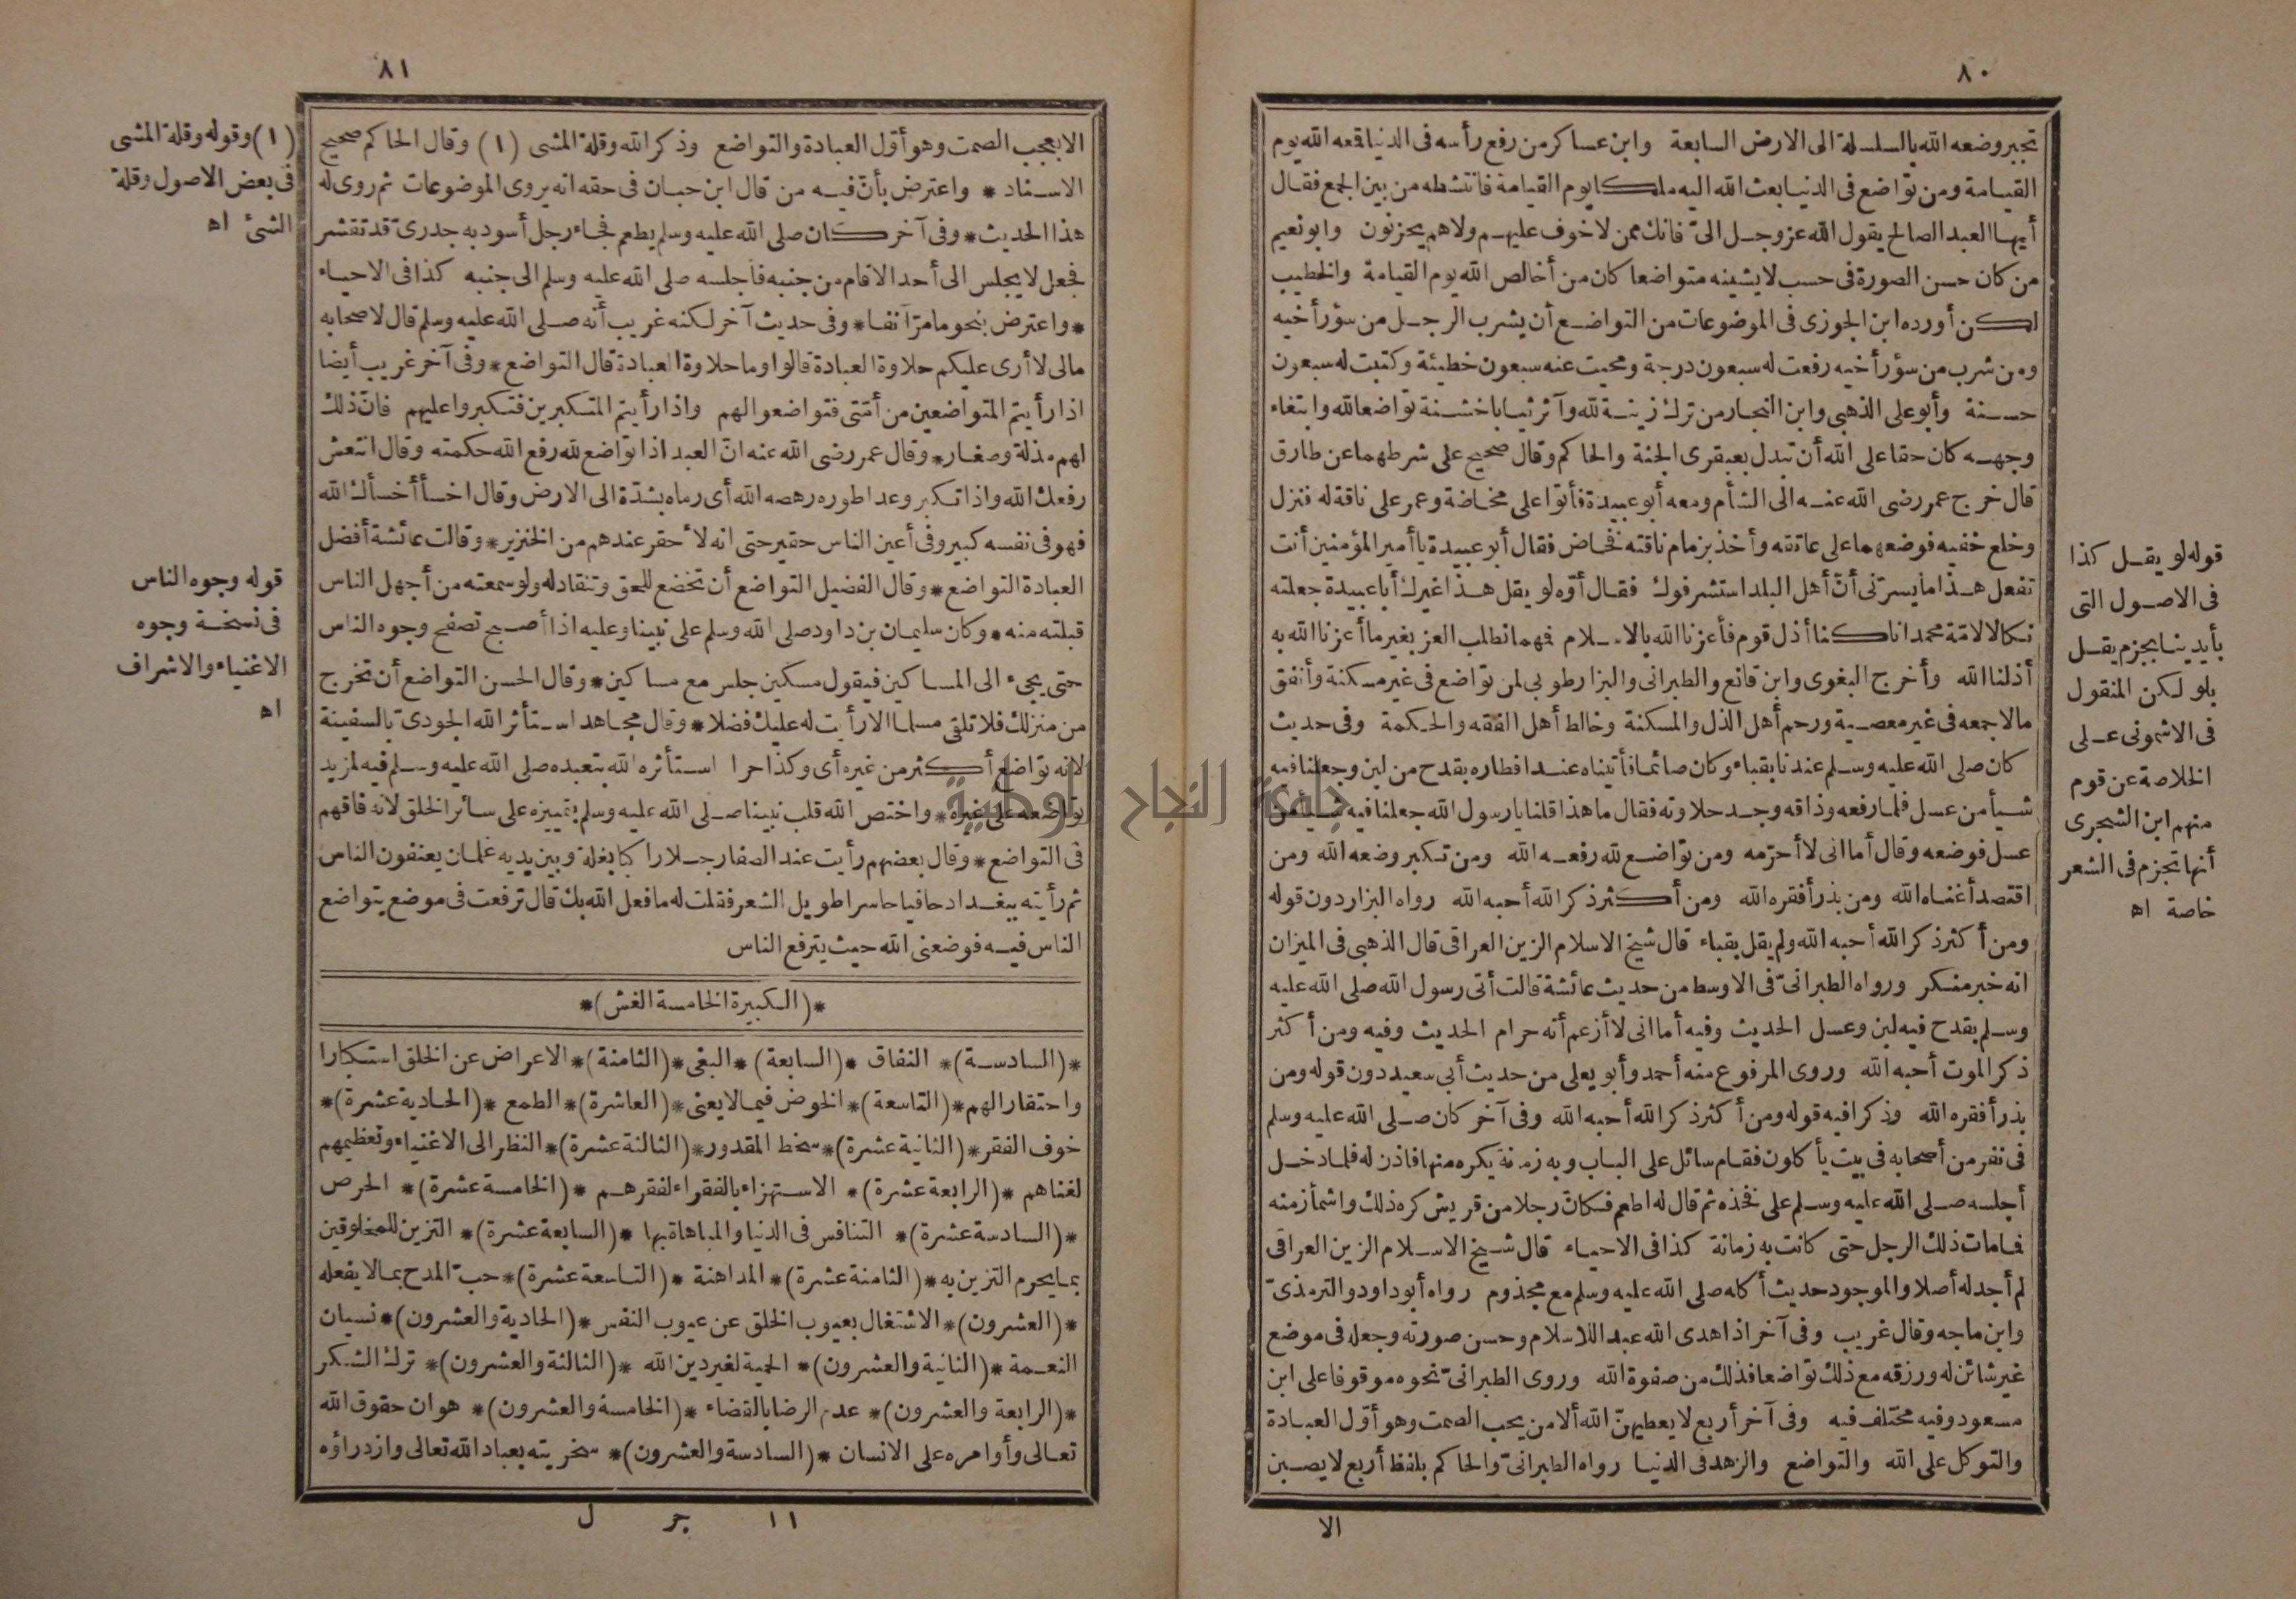 ٨٠
تجبر وضعه الله بالسلسلة الى الارض السابعة وابن عساكر من رفع رأسه فى الدنيا قعه الله يوم
القيامة ومن تواضع فى الدنيا بعث الله اليه ملكا يوم القيامة فانتشطه من بين الجمع فقال
أيها العبد الصالح يقول الله عز وجل الىّ فانك ممن لا خوف عليهم ولا هم يحزنون وابو نعيم
من كان حسن الصورة فى حسب لا يشينه متواضعا كان من أخالص الله يوم القيامة والخطيب
لكن أورده ابن الجوزى فى الموضوعات من التواضع أن يشرب الرجل من سؤر أخيه
ومن شرب من سؤر أخيه رفعت له سبعون درجة ومحيت عنه سبعون خطيئة وكتبت له سبعون
حسنة وأبو على الذهبى وابن النجار من ترك زينة لله وآثر ثيابا خشنة تواضعا لله وابتغاء
وجهه كان حقا على الله أن تبدل بعبقرى الجنة والحاكم وقال صحيح على شرطهما عن طارق
قال خرج عمر رضى الله عنه الى الشأم ومعه أبو عبيدة فأتوا على مخاضة وعمر على ناقة له فنزل
وخلع خفيه فوضعهما على عاتقه وأخذ بزمام ناقته فخاض فقال أبو عبيدة يا أمير المؤمنين أنت
تفعل هذا ما يسرنى أنّ أهل البلد استشرفوك فقال أوّه لو يقل هذا غيرك أبا عبيدة جعلته
نكالا لامّة محمد انا كنا أذل قوم فأعزنا الله بالاسلام فمهما نطلب العز بغير ما أعزنا الله به
أذلنا الله وأخرج البغوى وابن قانع والطبرانى والبزار طوبى لمن تواضع فى غير مسكنة وأنفق
مالا جمعه فى غير معصية ورحم أهل الذل والمسكنة وخالط أهل الفقه والحكمة وفى حديث
كان صلى الله عليه وسلم عندنا بقباء وكان صائما فأتيناه عند افطاره بقدح من لبن وجعلنا فيه
شيأ من عسل فلما رفعه وذاقه وجد حلاوته فقال ما هذا قلنا يا رسول الله جعلنا فيه شيأ من
عسل فوضعه وقال أما انى لا أحرّمه ومن تواضع لله رفعه الله ومن تكبر وضعه الله ومن
اقتصد أغناه الله ومن بذر أفقره الله ومن أكثر ذكر الله أحبه الله رواه البزار دون قوله
ومن أكثر ذكر الله أحبه الله ولم يقل بقباء قال شيخ الاسلام الزين العراقى قال الذهبى فى الميزان
انه خبر منكر ورواه الطبرانىّ فى الاوسط من حديث عائشة قالت أتى رسول الله صلى الله عليه
وسلم بقدح فيه لبن وعسل الحديث وفيه أما انى لا أزعم أنه حرام الحديث وفيه ومن أكثر
ذكر الموت أحبه الله وروى المرفوع منه أحمد وأبو يعلى من حديث أبى سعيد دون قوله ومن
بذر أفقره الله وذكرا فيه قوله ومن أكثر ذكر الله أحبه الله وفى آخر كان صلى الله عليه وسلم
فى نفر من أصحابه فى بيت يأكلون فقام سائل على الباب وبه زمنة يكره منها فاذن له فلما دخل
أجلسه صلى الله عليه وسلم على فخذه ثم قال له اطعم فكانّ رجلا من قريش كره ذلك واشمأز منه
فما مات ذلك الرجل حتى كانت به زمانة كذا فى الاحياء قال شيخ الاسلام الزين العراقى
لم أجد له أصلا والموجود حديث أكله صلى الله عليه وسلم مع مجذوم رواه أبو داود والترمذىّ
وابن ماجه وقال غريب وفى آخر اذا هدى الله عبدا للاسلام وحسن صورته وجعله فى موضع
غير شائن له ورزقه مع ذلك تواضعا فذلك من صفوة الله وروى الطبرانىّ نحوه موقوفا على ابن
مسعود وفيه مختلف فيه وفى آخر أربع لا يعطيهنّ الله ألا من يحب الصمت وهو أوّل العبادة
والتوكل على الله والتواضع والزهد فى الدنيا رواه الطبرانىّ والحاكم بلفظ أربع لا يصبن
الا
قوله لو يقل كذا
فى الاصول التى
بأيدينا بجزم يقل
بلو لكن المنقول
فى الاشمونى على
الخلاصة عن قوم
منهم ابن الشجرى
أنها تجزم فى الشعر
خاصة اه
٨١
الا بعجب الصمت وهو أوّل العبادة والتواضع وذكر الله وقلة المشى (١) وقال الحاكم صحيح
الاسناد * واعترض بأنّ فيه من قال ابن حبان فى حقه انه يروى الموضوعات ثم روى له
هذا الحديث * وفى آخر كان صلى الله عليه وسلم يطعم فجاء رجل أسود به جدرىّ قد تقشر
فجعل لا يجلس الى أحد الا قام من جنبه فأجلسه صلى الله عليه وسلم الى جنبه كذا فى الاحياء
* واعترض بنحو ما مرّ آنفا * وفى حديث آخر لكنه غريب أنه صلى الله عليه وسلم قال لاصحابه
مالى لا أرى عليكم حلاوة العبادة قالوا وما حلاوة العبادة قال التواضع * وفى آخر غريب أيضا
اذا رأيتم المتواضعين من أمّتى فتواضعوا لهم واذا رأيتم المتكبرين فتكبروا عليهم فانّ ذلك
لهم مذلة وصغار * وقال عمر رضى الله عنه انّ العبد اذا تواضع لله رفع الله حكمته وقال انتعش
رفعك الله واذا تكبر وعدا طوره رهصه الله أى رماه بشدّة الى الارض وقال اخسأ أخسأك الله
فهو فى نفسه كبير وفى أعين الناس حقير حتى انه لأحقر عندهم من الخنزير * وقالت عائشة أفضل
العبادة التواضع * وقال الفضيل التواضع أن تخضع للحق وتنقاد له ولو سمعته من أجهل الناس
قبلته منه * وكان سليمان بن داود صلى الله وسلم على نبينا وعليه اذا أصبح تصفح وجوه الناس
حتى يجىء الى المساكين فيقول مسكين جلس مع مساكين * وقال الحسن التواضع أن تخرج
من منزلك فلا تلقى مسلما الا رأيت له عليك فضلا * وقال مجاهد استأثر الله الجودىّ بالسفينة
لانه تواضع أكثر من غيره أى وكذا حرا استأثره الله بتعبده صلى الله عليه وسلم فيه لمزيد
تواضعه على غيره * واختص الله قلب نبينا صلى الله عليه وسلم بتمييزه على سائر الخلق لانه فاقهم
فى التواضع * وقال بعضهم رأيت عند الصفا رجلا راكبا بغلة وبين يديه غلمان يعنفون الناس
ثم رأيته ببغداد حافيا حاسرا طويل الشعر فقلت له ما فعل الله بك قال ترفعت فى موضع يتواضع
الناس فيه فوضعنى الله حيث يترفع الناس
*(الكبيرة الخامسة الغش)*
*(السادسة)* النفاق *(السابعة)* البغى *(الثامنة)* الاعراض عن الخلق استكبارا
واحتقارا لهم *(التاسعة)* الخوض فيما لا يعنى *(العاشرة)* الطمع *(الحادية عشرة)*
خوف الفقر *(الثانية عشرة)* سخط المقدور *(الثالثة عشرة)* النظر الى الاغنياء وتعظيمهم
لغناهم *(الرابعة عشرة)* الاستهزاء بالفقراء لفقرهم *(الخامسة عشرة)* الحرص
*(السادسة عشرة)* التنافس فى الدنيا والمباهاة بها *(السابعة عشرة)* التزين للمخلوقين
بما يحرم التزين به *(الثامنة عشرة)* المداهنة *(التاسعة عشرة)* حبّ المدح بما لا يفعله
*(العشرون)* الاشتغال بعيوب الخلق عن عيوب النفس *(الحادية والعشرون)* نسيان
النعمة *(الثانية والعشرون)* الحمية لغير دين الله *(الثالثة والعشرون)* ترك الشكر
*(الرابعة والعشرون)* عدم الرضا بالقضاء *(الخامسة والعشرون)* هوان حقوق الله
تعالى وأوامره على الانسان *(السادسة والعشرون)* سخريته بعباد الله تعالى وازدراؤه
١١ جر ل
(١) وقوله وقلة المشى
فى بعض الاصول وقلة
الشئ اه
قوله وجوه الناس
فى نسخة وجوه
الاغنياء والاشراف
اه
جامعة النجاح الوطنية